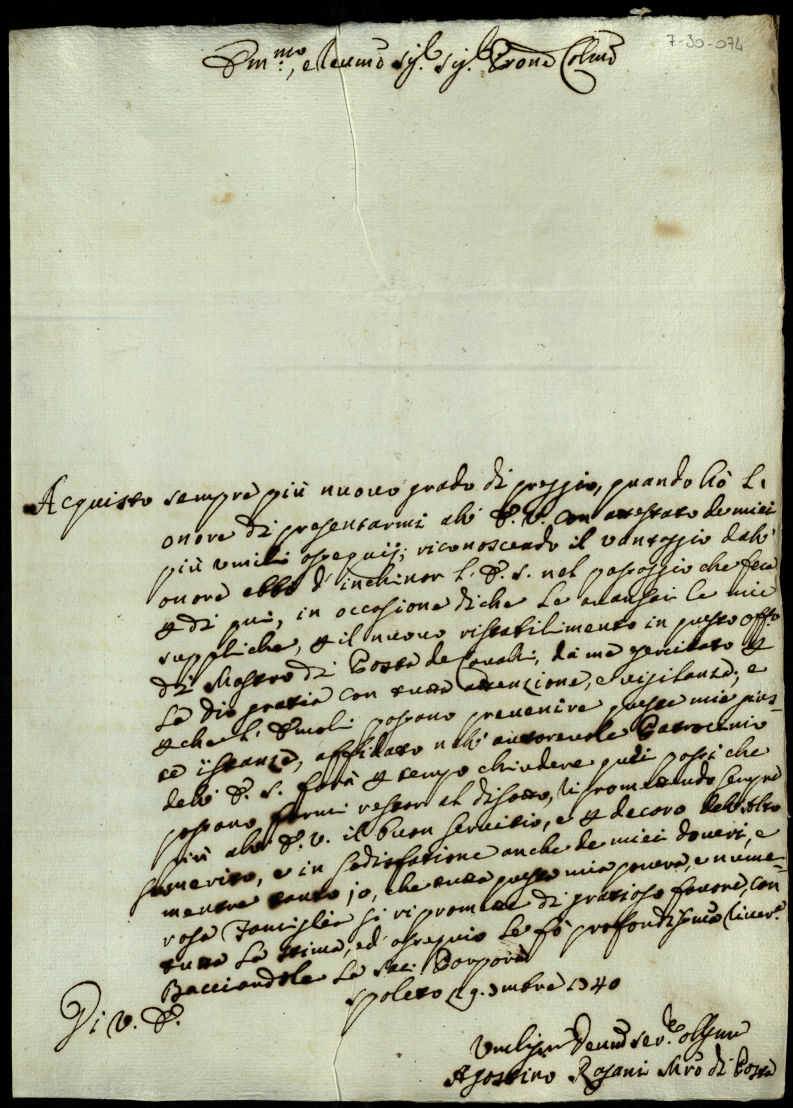 7-30-074
Em:mo, e Reumo Sig.r Sig.r Prone Colmo
Acquisto sempre più nuouo grado di preggio, quando hò l'
onore di presentarmi all' E. V. con attestato de miei
più umili ossequij; riconoscendo il vantaggio dall'
onore ebbi d'inchinar l'E. S. nel passaggio che fece
p di qui, in occasione di che Le auanzai le mie
suppliche, p il nuouo ristabilimento in questo offo
di Mastro di Posta de Caualli, da me esercitato p
La dio grazia con tutta attenzione, e vigilanza; e
p che l' Emoli possano preuenire queste mie gius-
te istanze, affidato nell' autoreuole Patrocinio
dell' E. S. sarà p sempo chiudere quei passi che
possano farmi restar al disotto, ripromettendo sempre
più all' E. V. il buon seruitio, e p decoro dell'alto
suo merito, e in sodisfatione anche de miei doueri, e
mentre tanto jo, che tutta questa mia pouera, e nume-
rosa Famiglia si ripromette di grazioso fauore, con
tutta La stima, ed ossequio Le fò profondissima riuer.a
Bacciandole La Sac: Porpora
Di V. E.
Spoleto 29. Xmbre 1740
Umilissmo Deumo ser.re obbmo
Agostino Rosani Mro di Posta